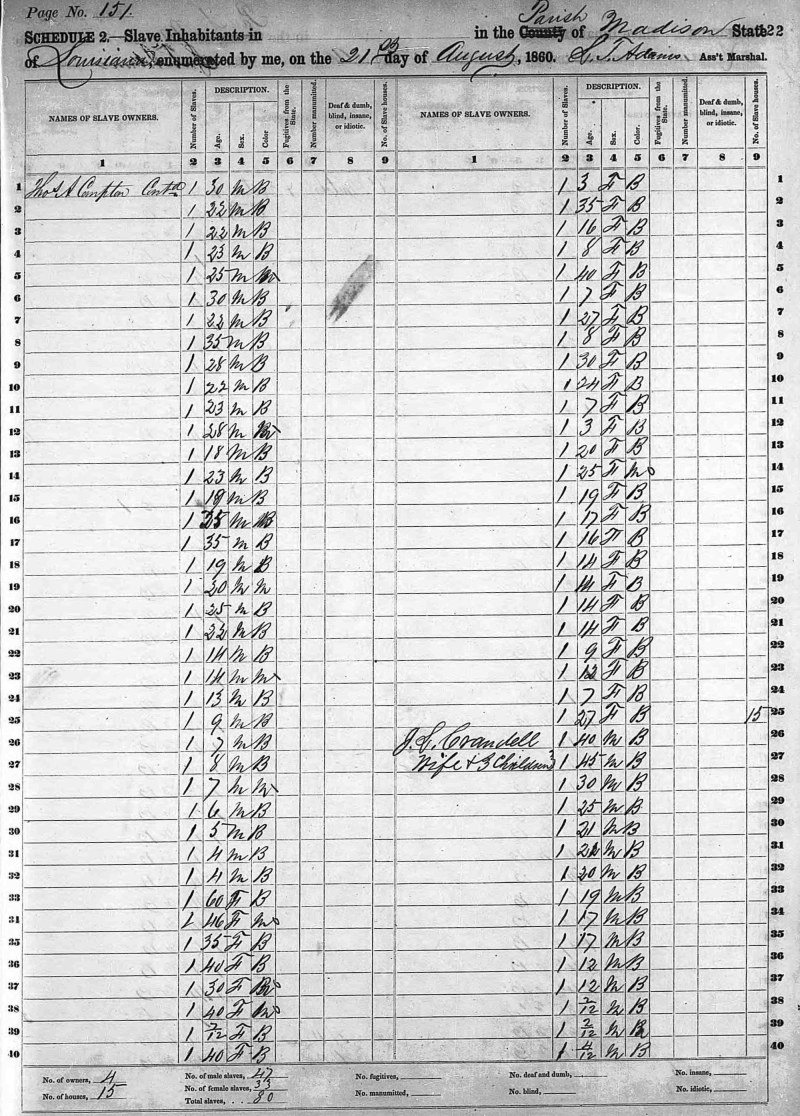 Page No. 151
SCHEDULE 2.—Slave Inhabitants in in the County Parish of Madison State 22
of Louisiana, enumerated by me, on the 21 day of August, 1860. Adams Ass't Marshal.
NAMES OF SLAVE OWNERS. Number of Slaves. DESCRIPTION. Age. Sex. Color Fugitives from the State. Number manumitted. Deaf & dumb, blind, insane, or idiotic. No. of Slave houses.
NAMES OF SLAVE OWNERS. Number of Slaves. DESCRIPTION. Age. Sex. Color. Fugitives from the State. Number manumitted. Deaf & dumb, blind, insane, or idiotic. No. of Slave houses.
1 2 3 4 5 6 7 8 9 1 2 3 4 5 6 7 8 9
1 Thos A Compton 1 30 M B 1 3 F B 1
2 1 22 M B 1 35 F B 2
3 1 22 M B 1 16 F B 3
4 1 23 M B 1 8 F B 4
5 1 25 M 1 40 F B 5
6 1 30 M B 1 7 F B 6
7 1 22 M B 1 27 F B 7
8 1 35 M B 1 8 F B 8
9 1 28 M B 1 30 F B 9
10 1 22 M B 1 24 F B 10
11 1 23 M B 1 7 F B 11
12 1 28 M 1 3 F B 12
13 1 18 M B 1 20 F B 13
14 1 23 M B 1 25 F M 14
15 1 19 M B 1 19 F B 15
16 1 M B 1 17 F B 16
17 1 35 M B 1 16 F B 17
18 1 19 M B 1 14 F B 18
19 1 20 M M 1 14 F B 19
20 1 25 M B 1 14 F B 20
21 1 22 M B 1 14 F B 21
22 1 14 M B 1 9 F B 22
23 1 14 M M 1 F B 23
24 1 13 M B 1 7 F B 24
25 1 9 M B 1 27 F B 15 25
26 1 7 M B J. C. Crandell 1 40 M B 26
27 1 8 M B Wife & 3 Children 1 45 M B 27
28 1 7 M M 1 30 M B 28
29 1 6 M B 1 25 M B 29
30 1 5 M B 1 21 M B 30
31 1 4 M B 1 M B 31
32 1 4 M B 1 20 M B 32
33 1 60 F B 1 19 M B 33
34 1 46 F M 1 17 M B 34
35 1 35 F B 1 17 M B 35
36 1 40 F B 1 12 M B 36
37 1 30 F 1 12 M B 37
38 1 40 F M 1 2/12 M B 38
39 1 2/12 F B 1 2/12 M B 39
40 1 40 F B 1 4/12 M B 40
No. of owners, 4 No. of male slaves, 47 No. fugitives, No. deaf and dumb, No. insane,
No. of houses, 15 No. of female slaves, 33 No. manumitted, No. blind, No. idiotic,
Total slaves, 80